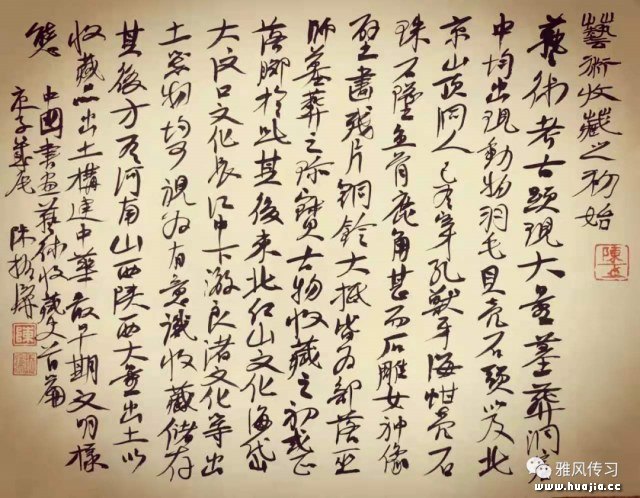 藝術收藏之初始
藝術考古現大量墓葬洞穴
中均出現動物羽毛貝壳石頭以及北
京山頂洞人已有穿孔獸牙海蚶壳石
珠石墜魚骨鹿角甚而石雕女神像
壁畫残片銅鈴大抵皆为部落巫
師墓葬之珍寶古物收藏之初或
落腳於此其後東北红山文化海岱
大汶口文化長江中下游良渚文化等出
土器物均可視为有意識收藏儲存
其後方有河南山西陝西大量出土以
收藏品出土構建中華最早期文明樣
態
中國書画藝術收藏史首篇
庚子歲尾 陳振濂
雅风传习
www.huajia.cc